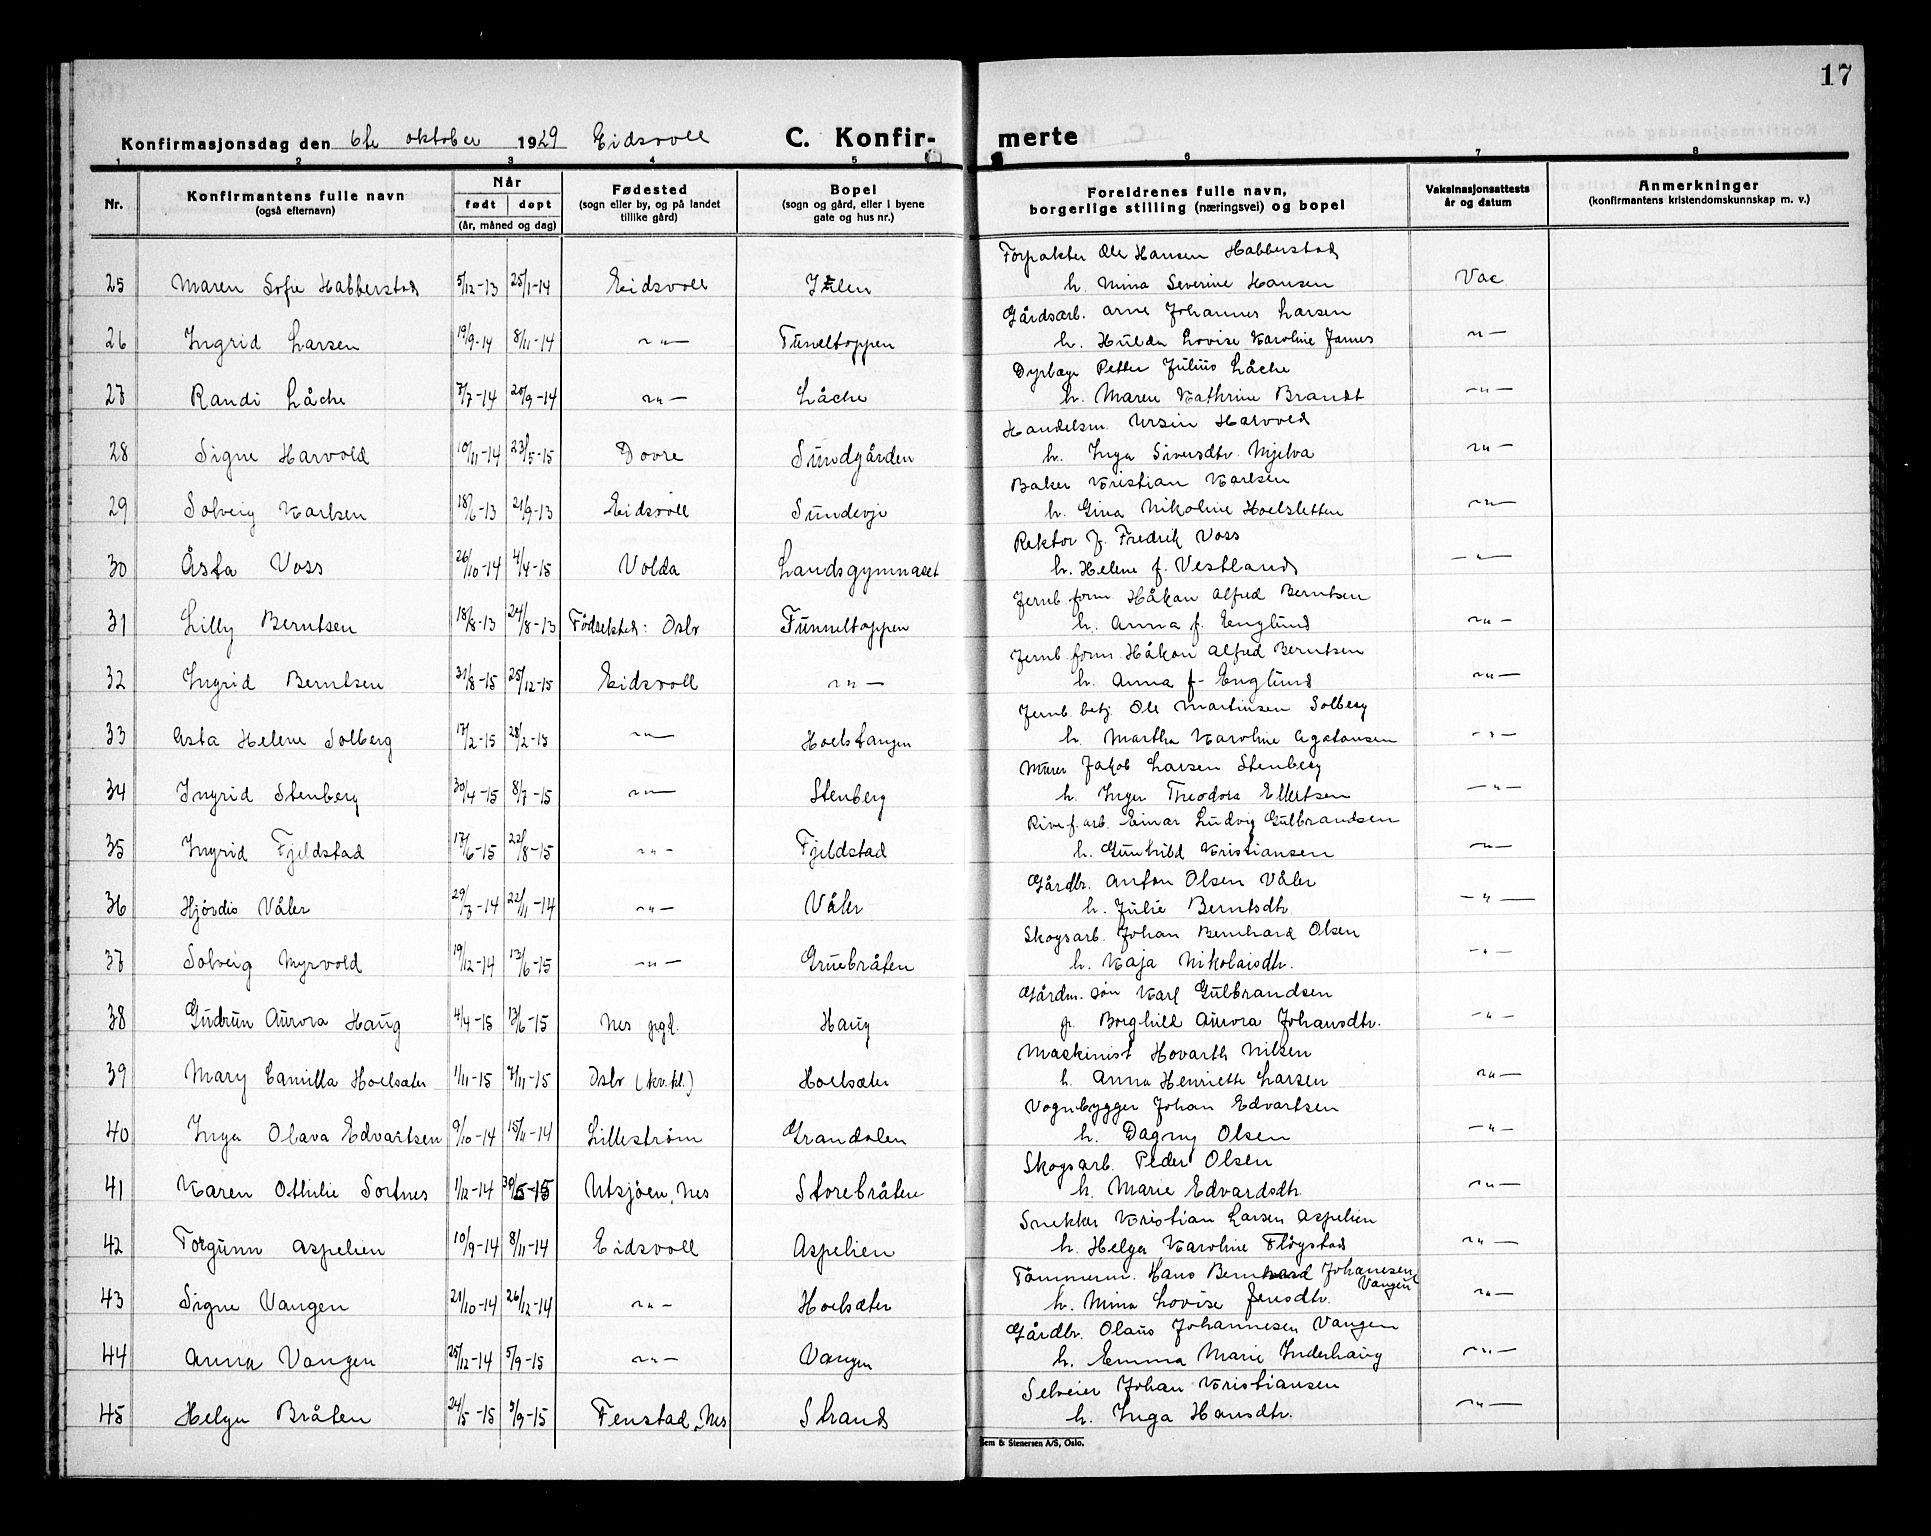 17
Konfirmasjonsdag den 6te oktober 1929 Eidsvoll C. Konfir- merte
1 2 3 4 5 6 7 8
Nr. Konfirmantens fulle navn (også efternavn) Når født døpt (år, måned og dag) Fødested (sogn eller by, og på landet tillike gård) Bopel (sogn og gård, eller i byene gate og hus nr.) Foreldrenes fulle navn, borgerlige stilling (næringsvei) og bopel Vaksinasjonsattests år og datum Anmerkninger (konfirmantens kristendomskunnskap m. v.)
Forpakter Ole Hansen Habberstad
25 Maren Sofie Habberstad 5/12-13 25/1-14 Eidsvoll h. Mina Severine Hansen Vac
Gårdsarb. Arne Johannes Larsen
26 Ingrid Larsen 19/9-14 8/11-14 -"- Tuneltoppen h. Hulda Lovise Karoline Jarnes -"-
Dyrlæge Petter Julius Låche
27 Randi Låche 7/7-14 20/9-14 -"- Låche h. Maren Kathrine Brandt -"-
Handelsm. Ursin Harvold
28 Signe Harvold 10/11-14 23/5-15 Dovre Sundgården h. Inga Siversdtr. Mjelva -"-
Baker Kristian Karlsen
29 Solveig Karlsen 18/6-13 21/9-13 Eidsvoll Sundevje h. Gina Nikoline Hoelsletten -"-
Rektor J. Fredrik Voss
30 Åsta Voss 26/10-14 4/4-15 Volda Landsgymnaset h. Helene f. Vestland -"-
Jernb.form Håkon Alfred Berntsen
31 Lilly Berntsen 18/8-13 24/8-13 Fødselsted: Oslo Tunneltoppen h. Anna f. Englund -"-
Jernb.form. Håkon Alfred Berntsen
32 Ingrid Berntsen 31/8-15 25/12-15 Eidsvoll -"- h. Anna f. Englund -"-
Jernb. betj. Ole Martinsen Solberg
33 Asta Helene Solberg 17/2-15 28/2-15 -"- Hoelstangen h. Martha Karoline Agatonsen -"-
Murer Jakob Larsen Stenberg
34 Ingrid Stenberg 30/4-15 8/7-15 -"- Stenberg h. Inger Theodora Ellertsen -"-
Einar Ludvig Gulbrandsen
35 Ingrid Fjeldstad 17/6-15 22/8-15 -"- Fjeldstad h. Gunhild Kristiansen -"-
Gårdbr. Anton Olsen Våler
36 Hjørdis Våler 29/7-14 22/11-14 -"- Våler h. Julie Berntsdtr. -"-
Skogsarb. Johan Bernhard Olsen
37 Solveig Myrvold 19/12-14 13/6-15 -"- Gruebråten h. Kaja Nikolaisdtr. -"-
Gårdm. søn Karl Gulbrandsen
38 Gudrun Aurora Haug 4/4-15 13/6-15 Nes prgd. Haug p. Borghild Aurora Johansdtr. -"-
Maskinist Hovarth Nilsen
39 Mary Camilla Hoelsæter 1/11-15 7/11-15 Oslo (kv.kl.) Hoelsæter h. Anna Henriette Larsen -"-
Vognbygger Johan Edvartsen
40 Inga Olava Edvartsen 9/10-14 15/11-14 Lillestrøm Grandalen h. Dagny Olsen -"-
Skogsarb. Peder Olsen
41 Karen Othilie Sortnes 1/12-14 30/5-15 Utsjøen, Nes Storebråten h. Marie Edvardsdtr. -"-
Snekker Kristian Larsen Aspelien
42 Torgunn Aspelien 10/9-14 8/11-14 Eidsvoll Aspelien h. Helga Karoline Fløgstad -"-
Tømmerm. Hans Bernhard Johanesen Vangen
43 Signe Vangen 21/10-14 26/12-14 -"- Hoelsæter h. Mina Lovise Jensdtr. -"-
Gårdbr. Olaus Johannesen Vangen
44 Anna Vangen 25/12-14 5/9-15 -"- Vangen h. Emma Marie Inderhaug -"-
Selveier Johan Kristiansen
45 Helga Bråten 24/5-15 5/9-15 Fenstad, Nes Strand h. Inga Hansdtr. -"-
Sem & Stenersen A/S, Oslo.